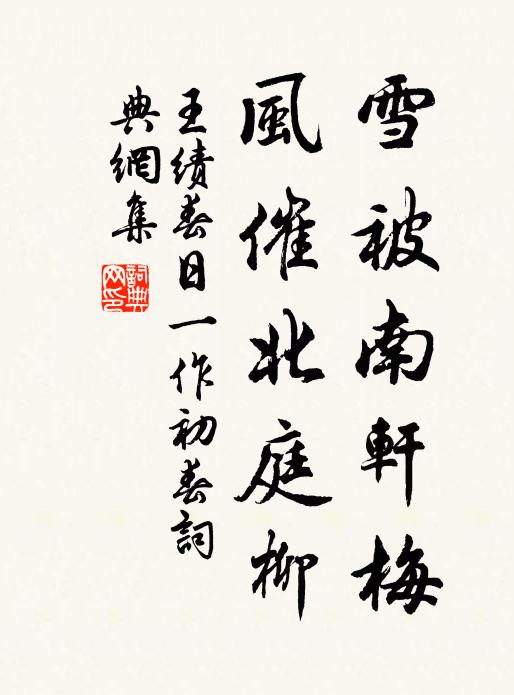 雪被南軒梅
風催北庭柳
王績春日一作初春詞
典網集
詞典网印